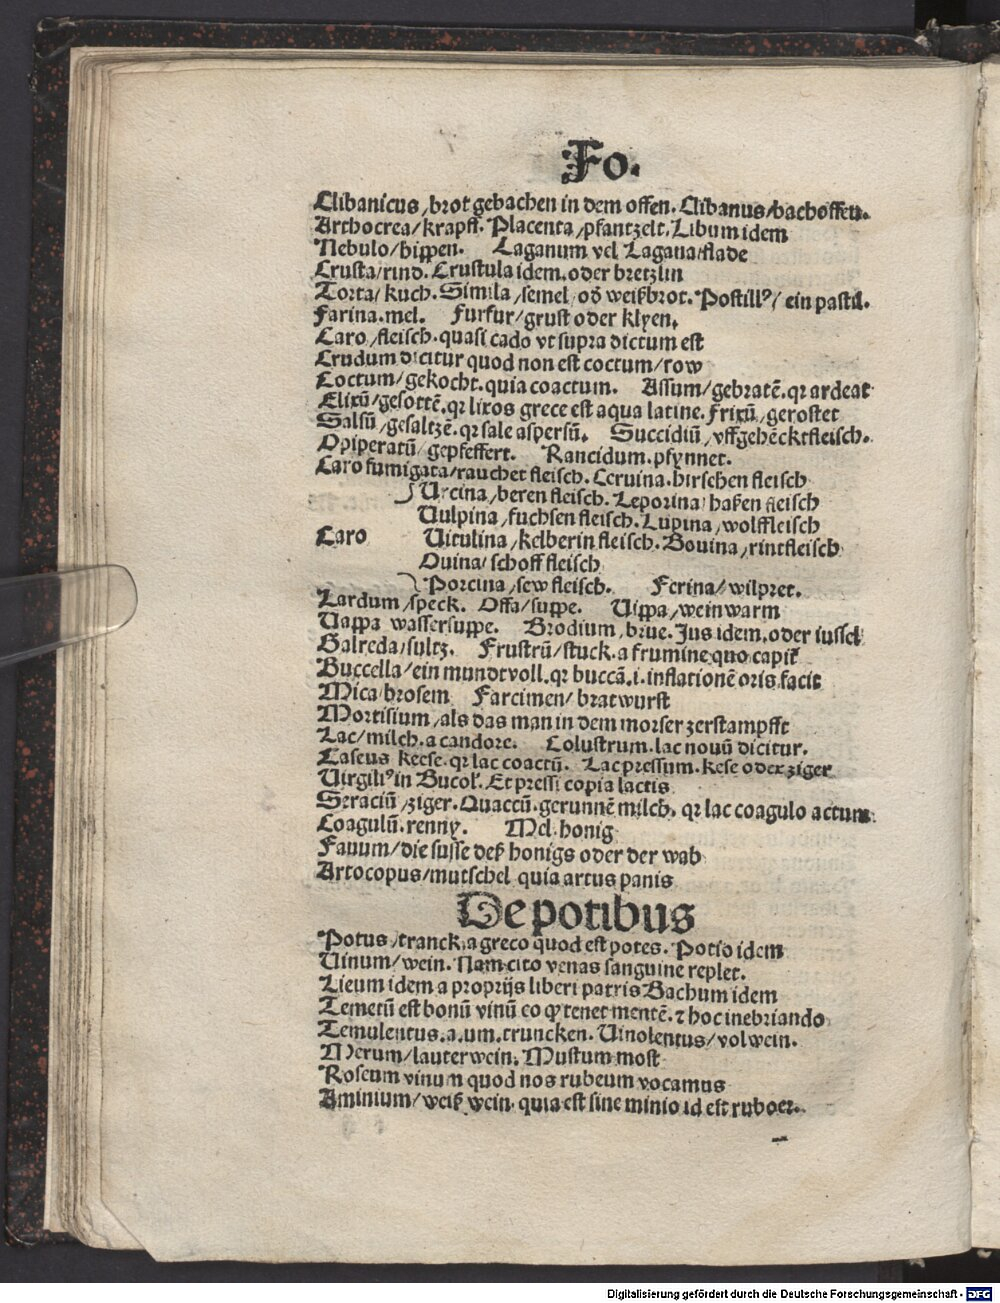 Fo.
Clibanicus/brot gebachen in dem offen. Clibanus/bachoffen.
Arthocrea/krapff. Placenta/pfantzelt. Libum idem
Nebulo/hippen. Laganum vel Lagana/flade
Crusta/rind. Crustula idem. oder bretzlin
Torta/kuch. Simila/semel/od̕ weißbrot. Postillꝰ/ein pastil.
Farina. mel. Furfur/grust oder klyen.
Caro/fleisch. quasi cado vt supra dictum est
Crudum dicitur quod non est coctum/row
Coctum/gekocht. quia coactum. Assum/gebratē. qꝛ ardeat
Elixū/gesottē. qꝛ lixos grece est aqua latine. Frixū/gerostet
Salsū/gesaltzē. qꝛ sale aspersū. Succidiū/vffgehēcktfleisch.
Opiperatū/gepfeffert. Rancidum. pfynnet.
Caro fumigata/rauchet fleisch. Ceruina. hirschen fleisch
Vrcina/beren fleisch. Leporina/haßen fleisch
Vulpina/fuchsen fleisch. Lupina/wolffleisch
Caro Vitulina/kelberin fleisch. Bouina/rintfleisch
Ouina/schoff fleisch
Porcina/sew fleisch. Ferina/wilpret.
Lardum/speck. Offa/suppe. Vippa/weinwarm
Vappa wassersuppe. Brodium/brue. Jus idem. oder iussel
Galreda/sultz. Frustrū/stuck. a frumine quo capit̕
Buccella/ein mundtvoll. qꝛ buccā. i. inflationē oris facit
Mica/brosem Farcimen/bratwurst
Mortisium/als das man in dem morser zerstampfft
Lac/milch. a candore. Colustrum. lac nouū dicitur.
Caseus keese. qꝛ lac coactū. Lac pressum. kese oder ziger
Virgiliꝰ in Bucol̕. Et pressi copia lactis
Seraciū/ziger. Quaccū. gerunnē milch. qꝛ lac coagulo actum
Coagulū. renny. Mel. honig
Fauum/die susse deß honigs oder der wab
Artocopus/mutschel quia artus panis
De potibus
Potus/tranck. a greco quod est potes. Potio idem
Vinum/wein. Nam cito venas sanguine replet.
Lieum idem a proprijs liberi patris Bachum idem
Temetū est bonū vinū eo ꝙ tenet mentē. ⁊ hoc inebriando
Temulentus. a. um. truncken. Vinolentus/vol wein.
Merum/lauter wein. Mustum most
Roseum vinum quod nos rubeum vocamus
Aminium/weiß wein. quia est sine minio id est ruboer.
Digitalisierung gefördert durch die Deutsche Forschungsgemeinschaft - DFG